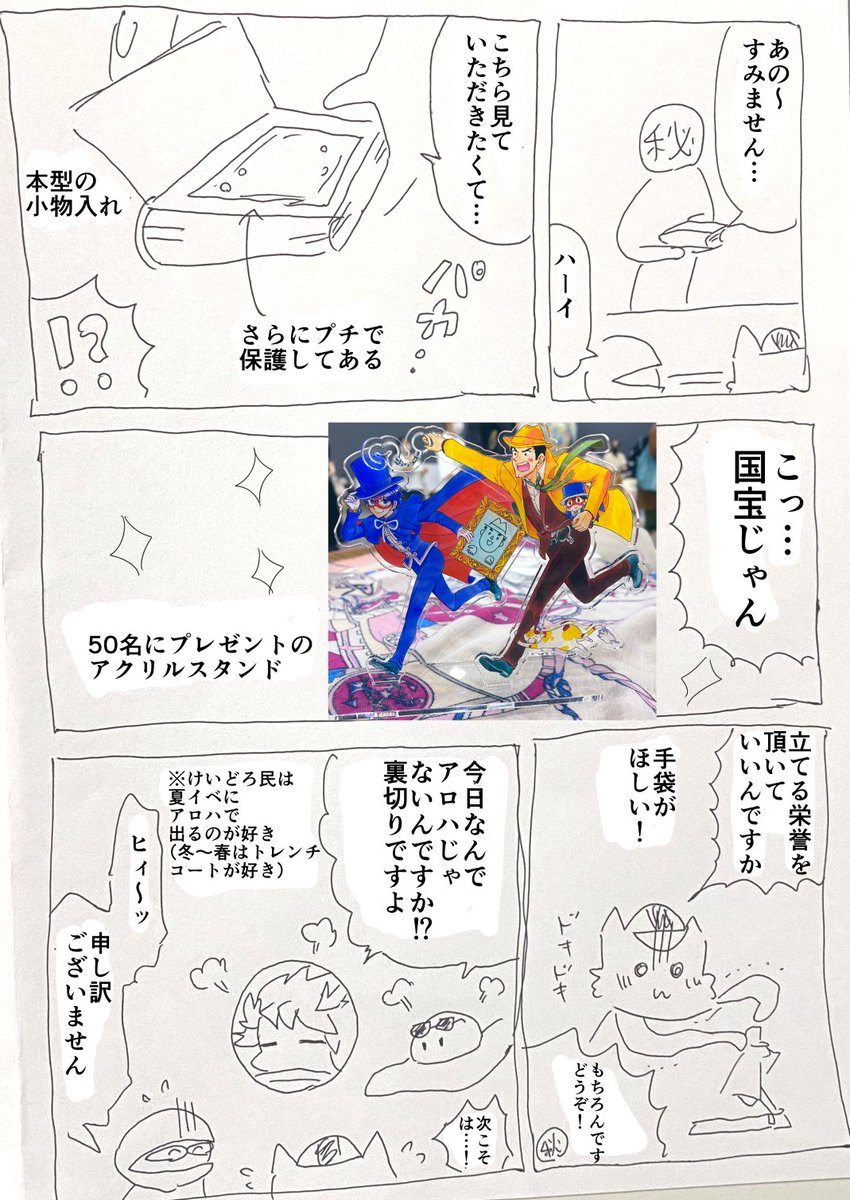 あの〜
すみません…
秘
ハーイ
こちら見て
いただきたくて…
本型の
小物入れ
パカ・
さらにプチで
保護してある
!?
こっ…
国宝じゃん
50名にプレゼントの
アクリルスタンド
立てる栄誉を
頂いて
いいんですか
手袋が
ほしい!
ドキドキ
もちろんです
どうぞ!
秘
今日なんで
アロハじゃ
ないんですか!?
裏切りですよ
※けいどろ民は
夏イベに
アロハで
出るのが好き
(冬〜春はトレンチ
コートが好き)
ヒィ〜ッ
申し訳
ございません
次こそ
は…!